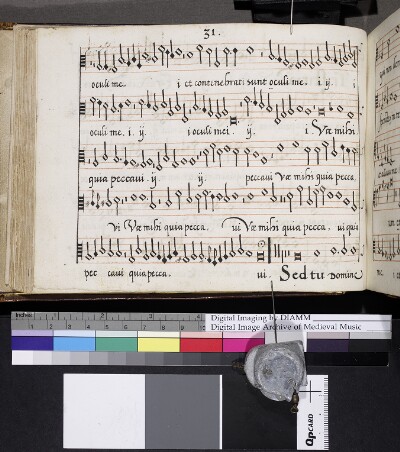 31.
oculi me. i et contenebrati sunt oculi me. i. ij. i
oculi me. i. ij. i oculi mei. ij. i. Væ mihi
quia peccavi. ij. ij. peccavi Væ mihi quia pecca
vi Væ mihi quia pecca. vi Væ mihi quia pecca. vi quia
pec cavi quia pecca. vi. Sed tu Domine
Inches 1 2 3 4
Digital Imaging by DIAMM
Digital Image Archive of Medieval Music
QPCARD